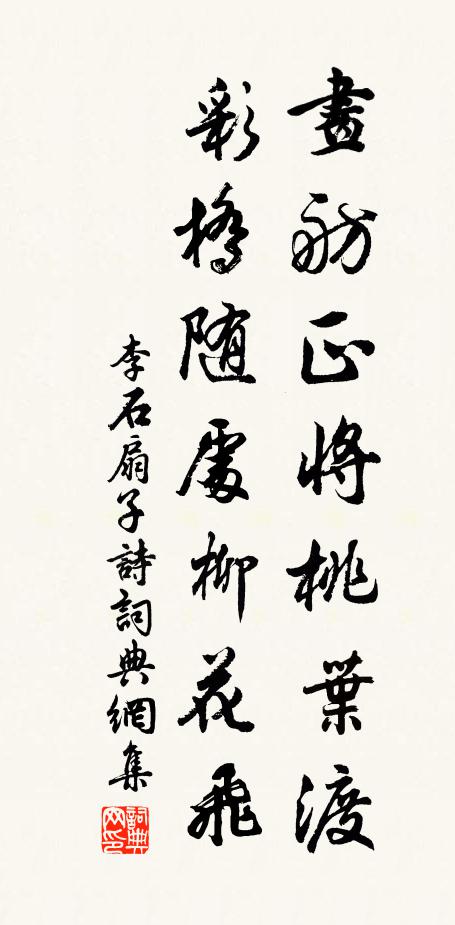 畫舫正將桃葉渡
彩橋随處柳花飛
李石扇子詩詞典網集
詞典网印